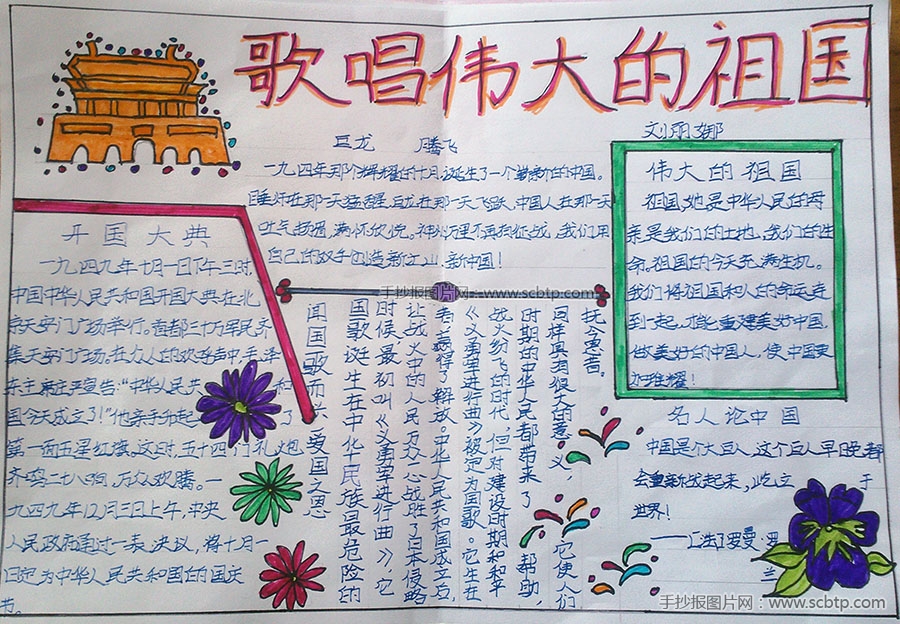 歌唱伟大的祖国
刘丽娜
巨龙 腾飞
一九四年那个辉耀的十月,诞生了一个崭新的中国。
睡狮在那一天猛醒,巨龙在那一天飞跃,中国人在那一天
吐气扬眉,满怀欣悦。神州万里不再征战,我们用
自己的双手创造新江山、新中国!
开国大典
一九四九年十月一日下午三时,
中国中华人民共和国开国大典在北
京天安门广场举行。首都三十万军民齐
集天安门广场。在万人的欢呼声中,毛泽
东主席庄严宣告:“中华人民共 和
国今天成立了!”他亲手升起 了
第一面五星红旗。这时,五十四门礼炮
齐鸣二十八响,万众欢腾。一
九四九年12月三日上午,中央
人民政府通过一表决议,将十月一
日定为中华人民共和国的国庆
节。
闻国歌而 爱国之思
国歌诞生在中华民族最危险的
时候最初叫《义勇军进行曲》它
让战火中的人民万众一心战胜了日本侵略
者,赢得了解放。中华人民共和国成立后,
《义勇军进行曲》被定为国歌。它生在
战火纷飞的时代,但对建设时期和和平
时期的中华人民都带来了 帮助,
同样具有很大的意义,它使人们
抚今思昔。
伟大的祖国
祖国,她是中华人民的母
亲,是我们的土地,我们的生
命。祖国的今天充满生机。
我们将祖国和人的命运连
到一起,才能重建美好中国,
做美好的中国人,使中国更
加辉耀!
名人论中国
中国是个大巨人,这个巨人早晚都
会重新站起来,屹立 于
世界!
——[法]罗曼·罗
兰
手抄报图片网:www.scbtp.com
手抄报图片网:www.scbtp.com